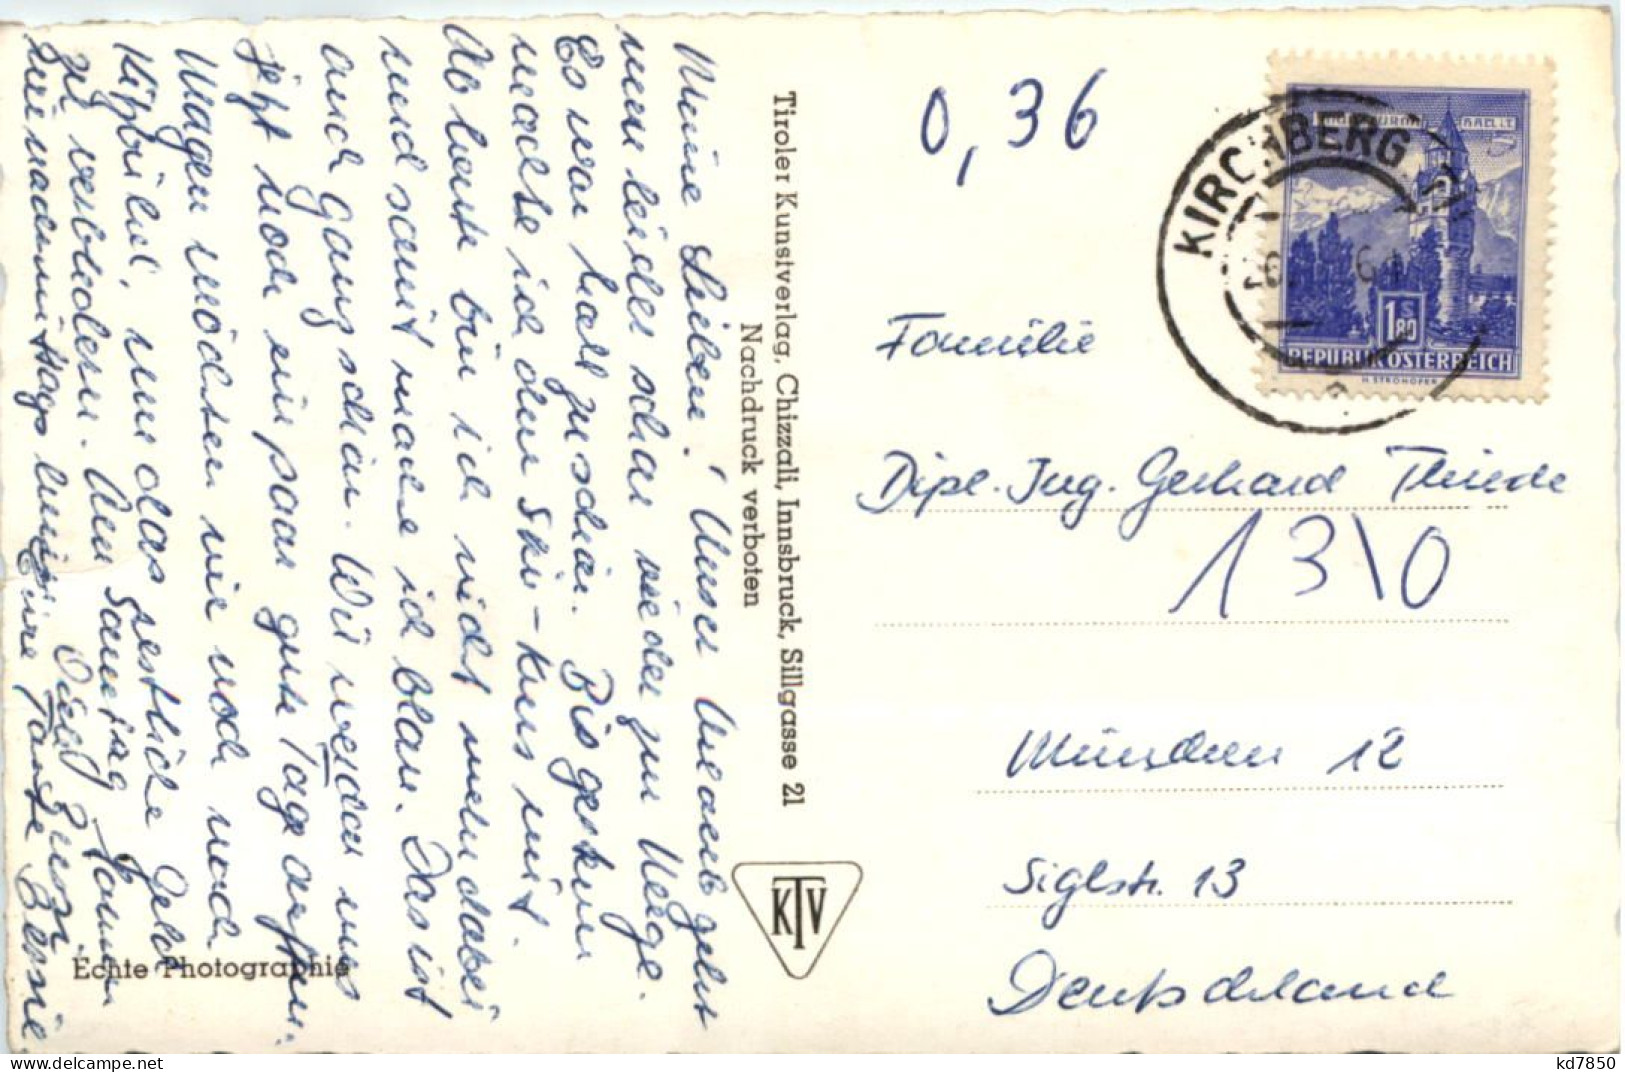 Meine Lieben! Unser Urlaub geht
nun leider schon wieder zur Neige.
Es war halt zu schön. Bis gestern
machte ich den Ski-Kurs mit.
Ab heute bin ich nicht mehr dabei
und somit mache ich blau. Das ist
auch ganz schön. Wir werden uns
jetzt noch ein paar gute Tage
Morgen möchten wir noch nach
Kitzbühel, um das restliche Geld
zu verbudern. Am Samstag kommen
wir nachmittags heim. Eure Tante Bessie.
Tiroler Kunstverlag, Chizzali, Innsbruck, Sillgasse 21
Nachdruck verboten
KTV
Echte Photographie
0,36
KIRCHBERG
1 S 80
REPUBLIK ÖSTERREICH
H. STROHOFER
Familie
Dipl. Ing. Gerhard Thiede
13\0
München 12
Siglstr. 13
Deutschland
kd7850